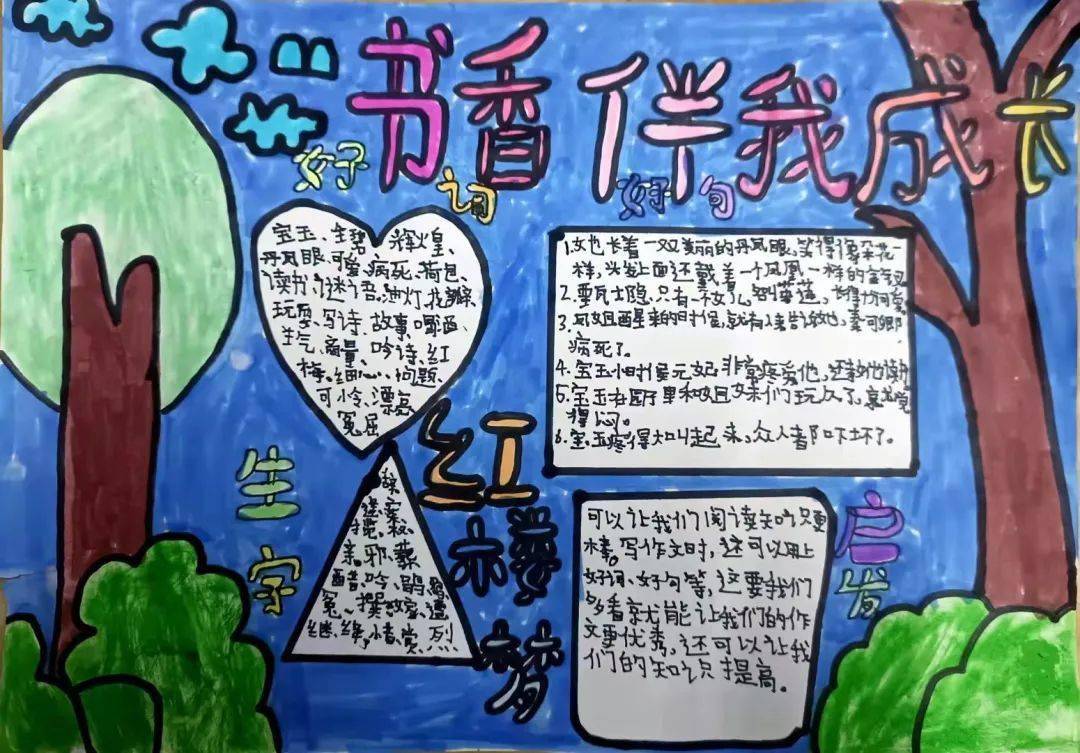 书香伴我成长
好词
好句
宝玉、宝琴、辉煌、
丹凤眼、可爱、病死、荷包、
读书、谜语、油灯、找
玩耍、写诗、故事、喝酒、
生气、商量、吟诗、红
梅、细心、问题、
可怜、漂亮、
冤屈
1.她长着一双美丽的丹凤眼,笑得像朵花一
样,头发上面还戴着一个凤凰一样的金钗
2.甄士隐,只有一女儿,
3.凤姐醒来的时候,就有人来告诉她,秦可卿
病死了。
4.宝玉小时候元妃非常疼爱他,
5.宝玉在园子里和姐妹们玩久了,竟然觉
得闷。
6.宝玉疼得大叫起来,众人都吓坏了。
生字
邪
醋、吟、鹃
冤、撰、遭
继、绛、惜、赏、烈
红楼梦
启发
可以让我们阅读知识更
棒。写作文时,还可以用上
好词、好句等,这要我们
多看就能让我们的作
文更优秀,还可以让我
们的知识提高。